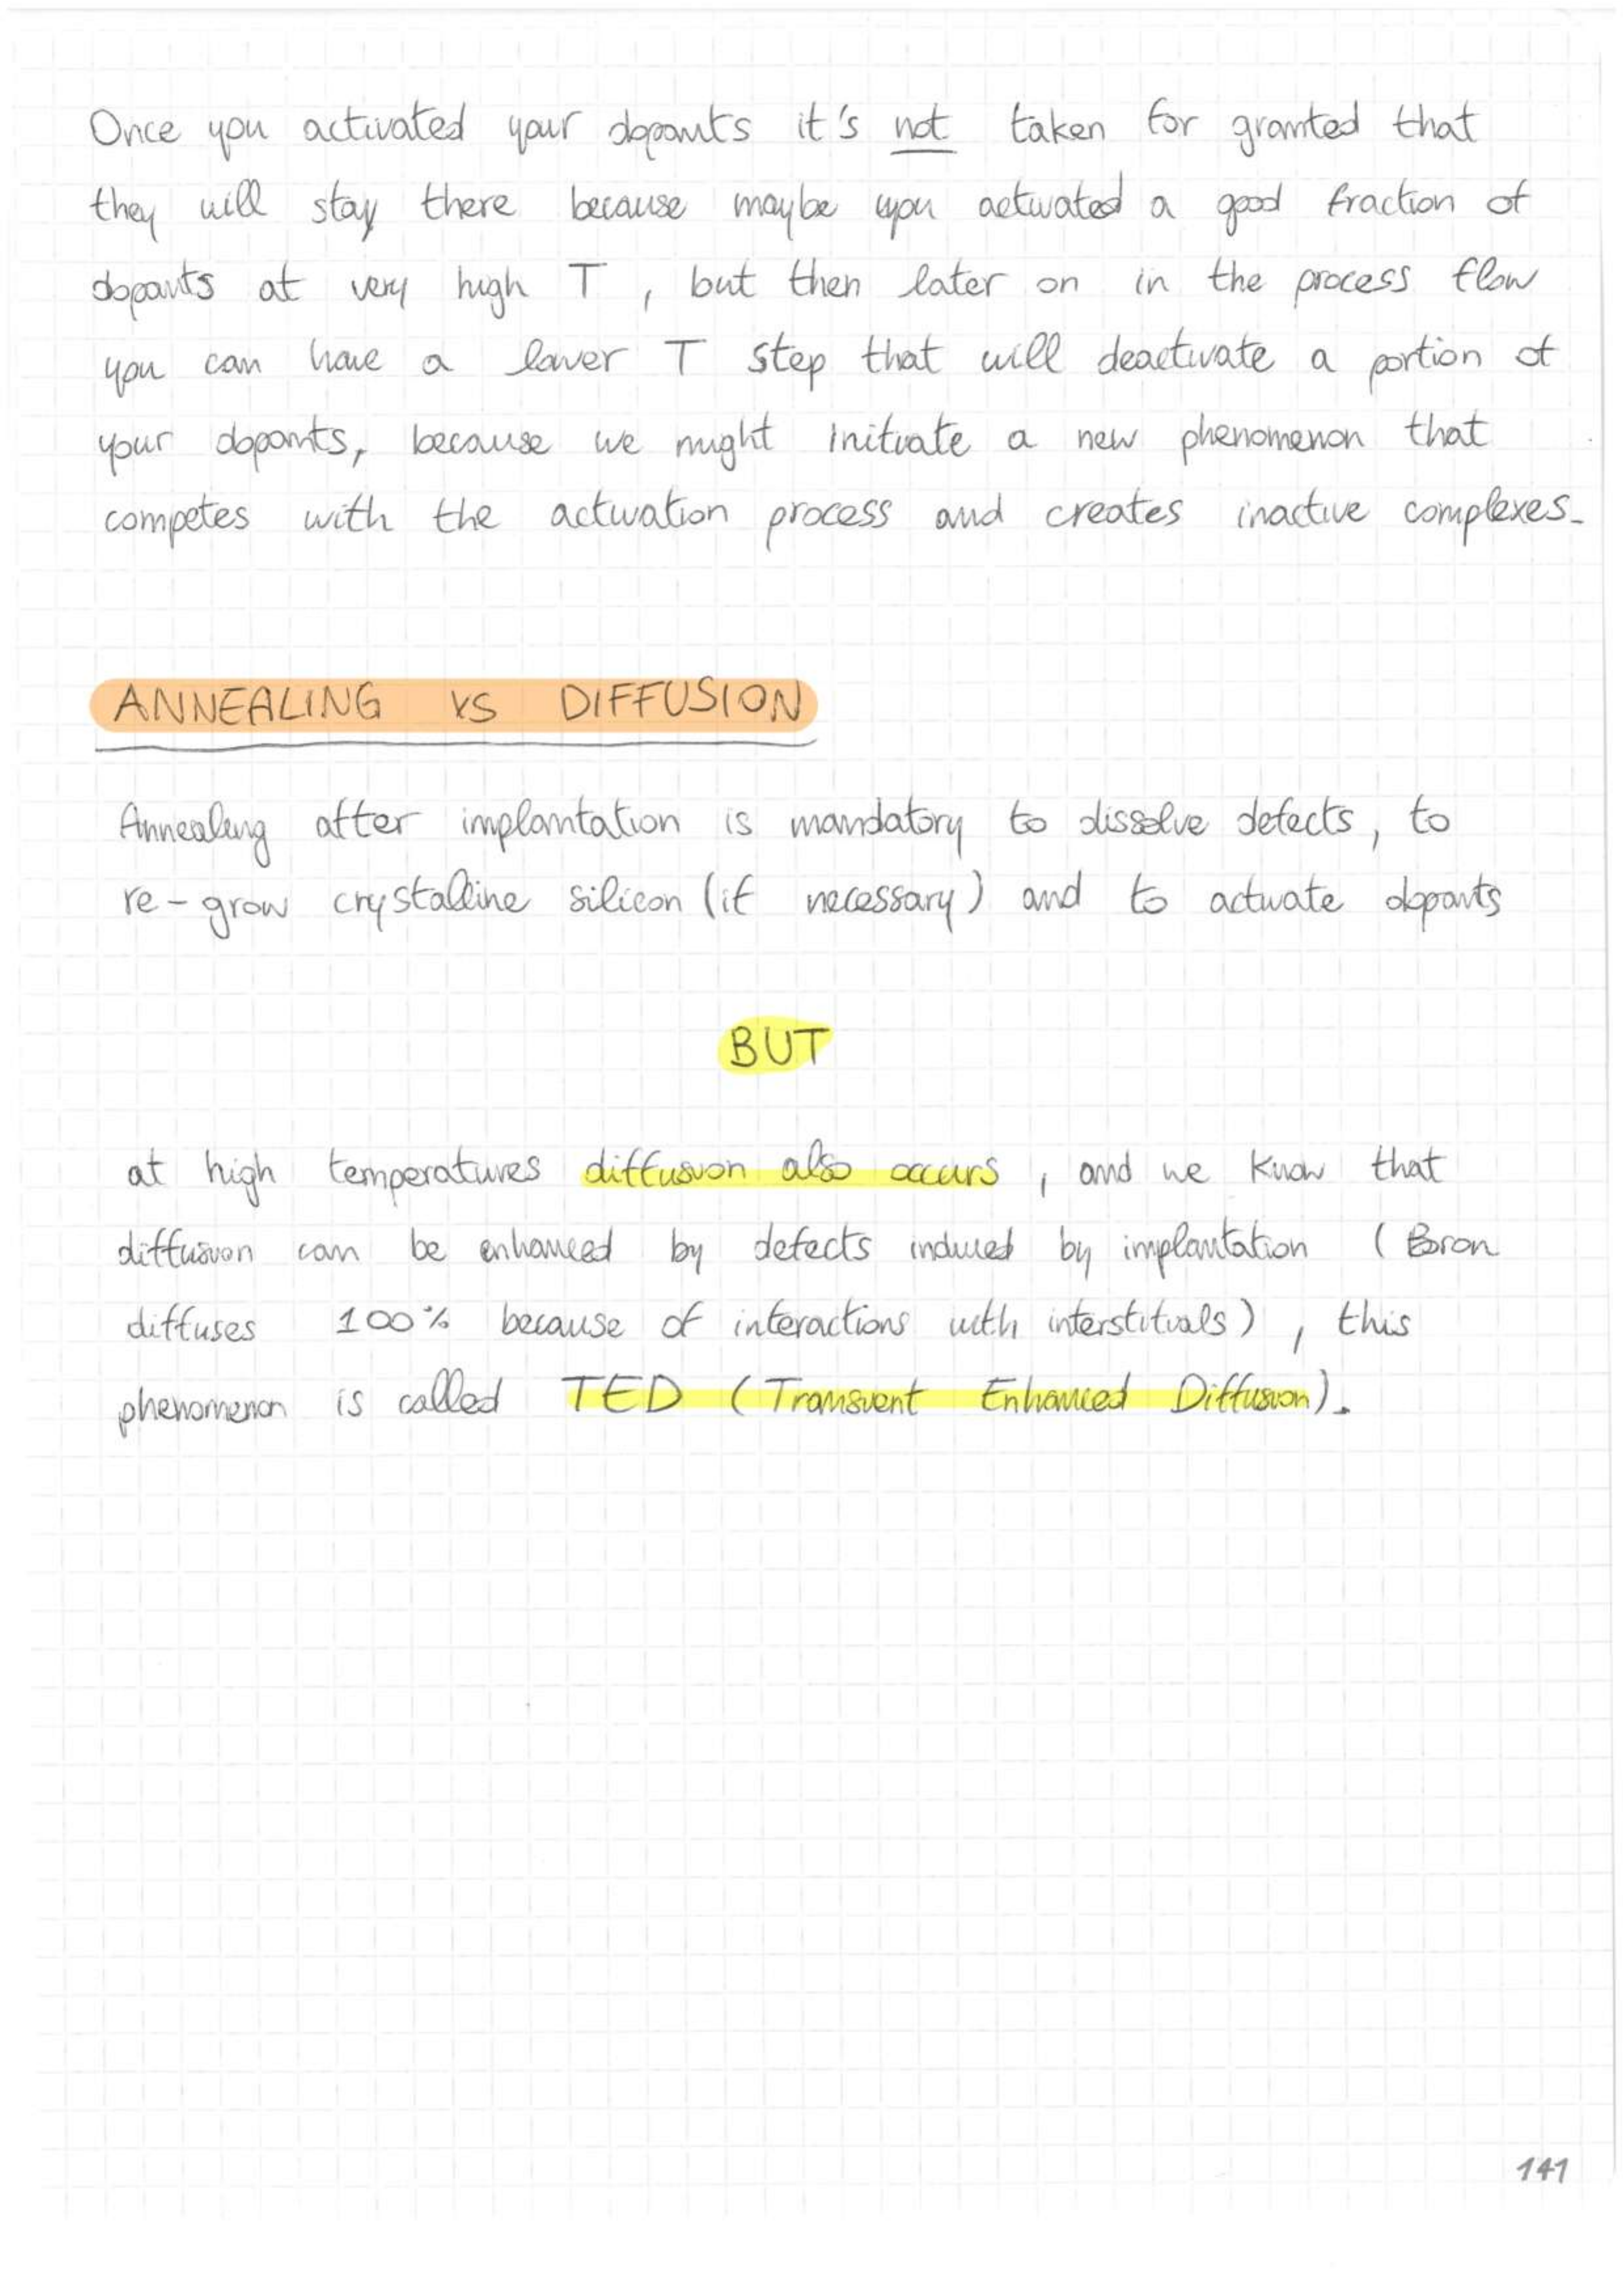 Once you activated your dopants it's not taken for granted that
they will stay there because maybe you activated a good fraction of
dopants at very high T, but then later on in the process flow
you can have a lower T step that will deactivate a portion of
your dopants, because we might initiate a new phenomenon that
competes with the activation process and creates inactive complexes.
ANNEALING VS DIFFUSION
Annealing after implantation is mandatory to dissolve defects, to
re-grow crystalline silicon (if necessary) and to activate dopants
BUT
at high temperatures diffusion also occurs, and we know that
diffusion can be enhanced by defects induced by implantation (Boron
diffuses 100% because of interactions with interstitials), this
phenomenon is called TED (Transient Enhanced Diffusion).
141